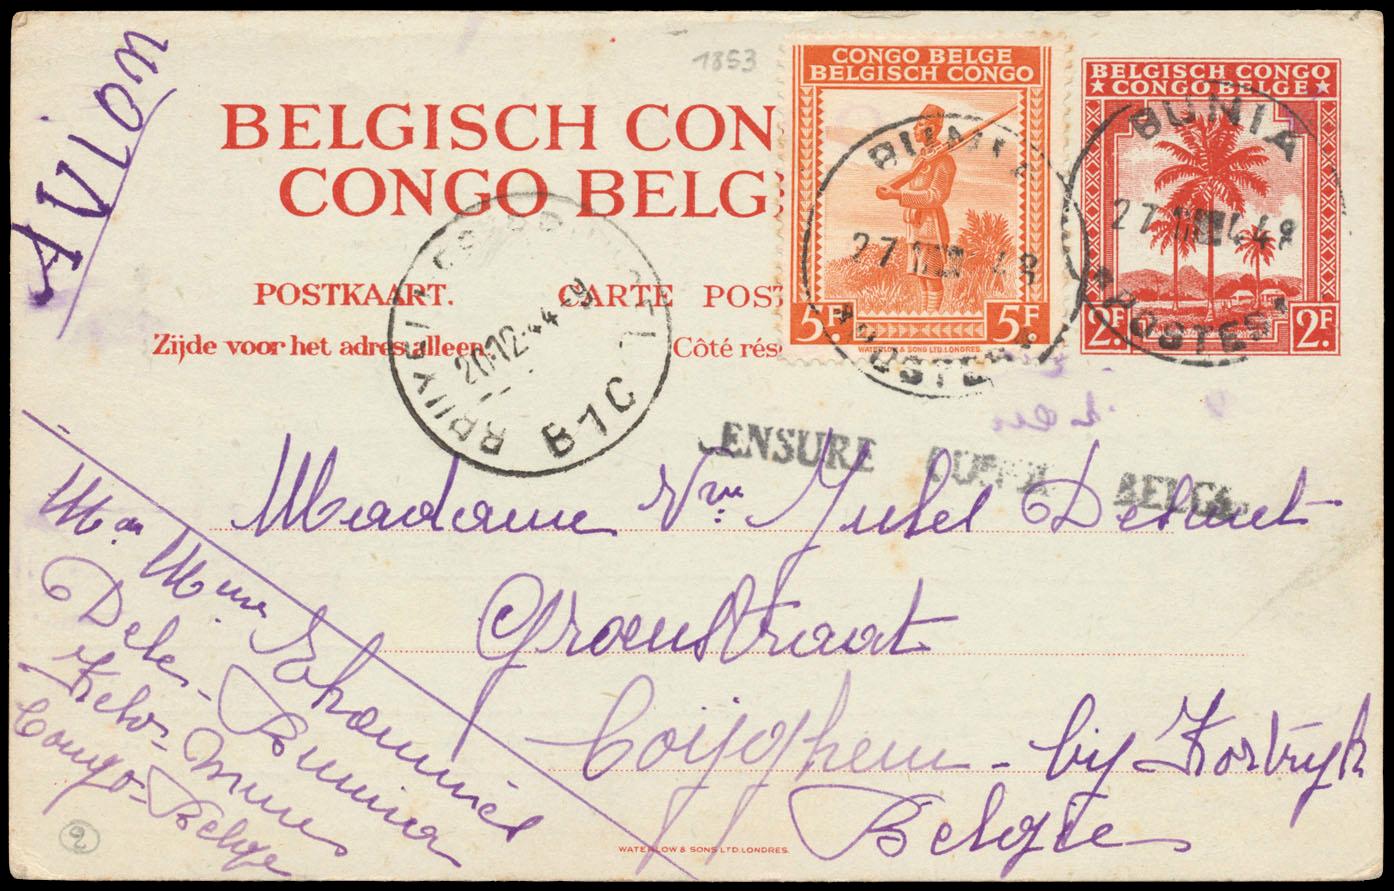 Avion
1853
BELGISCH CON
CONGO BELG
POSTKAART. CARTE POST
Zijde voor het adres alleen. Côté rés
CONGO BELGE
BELGISCH CONGO
5F 5F
WATERLOW & SONS LTD. LONDRES.
BELGISCH CONGO
★ CONGO BELGE ★
2F. 2F.
BUNIA
27 48
POSTES
BUNIA
27 48
POSTES
20.12.44-9
B1C
CENSURE CONGO BELGE
Madame Vve Jules
Graenstraat
Coijghem - bij Kortryk
Belgie
Mme
Bunia
Kilo-
Congo-Belge
2
WATERLOW & SONS LTD. LONDRES.